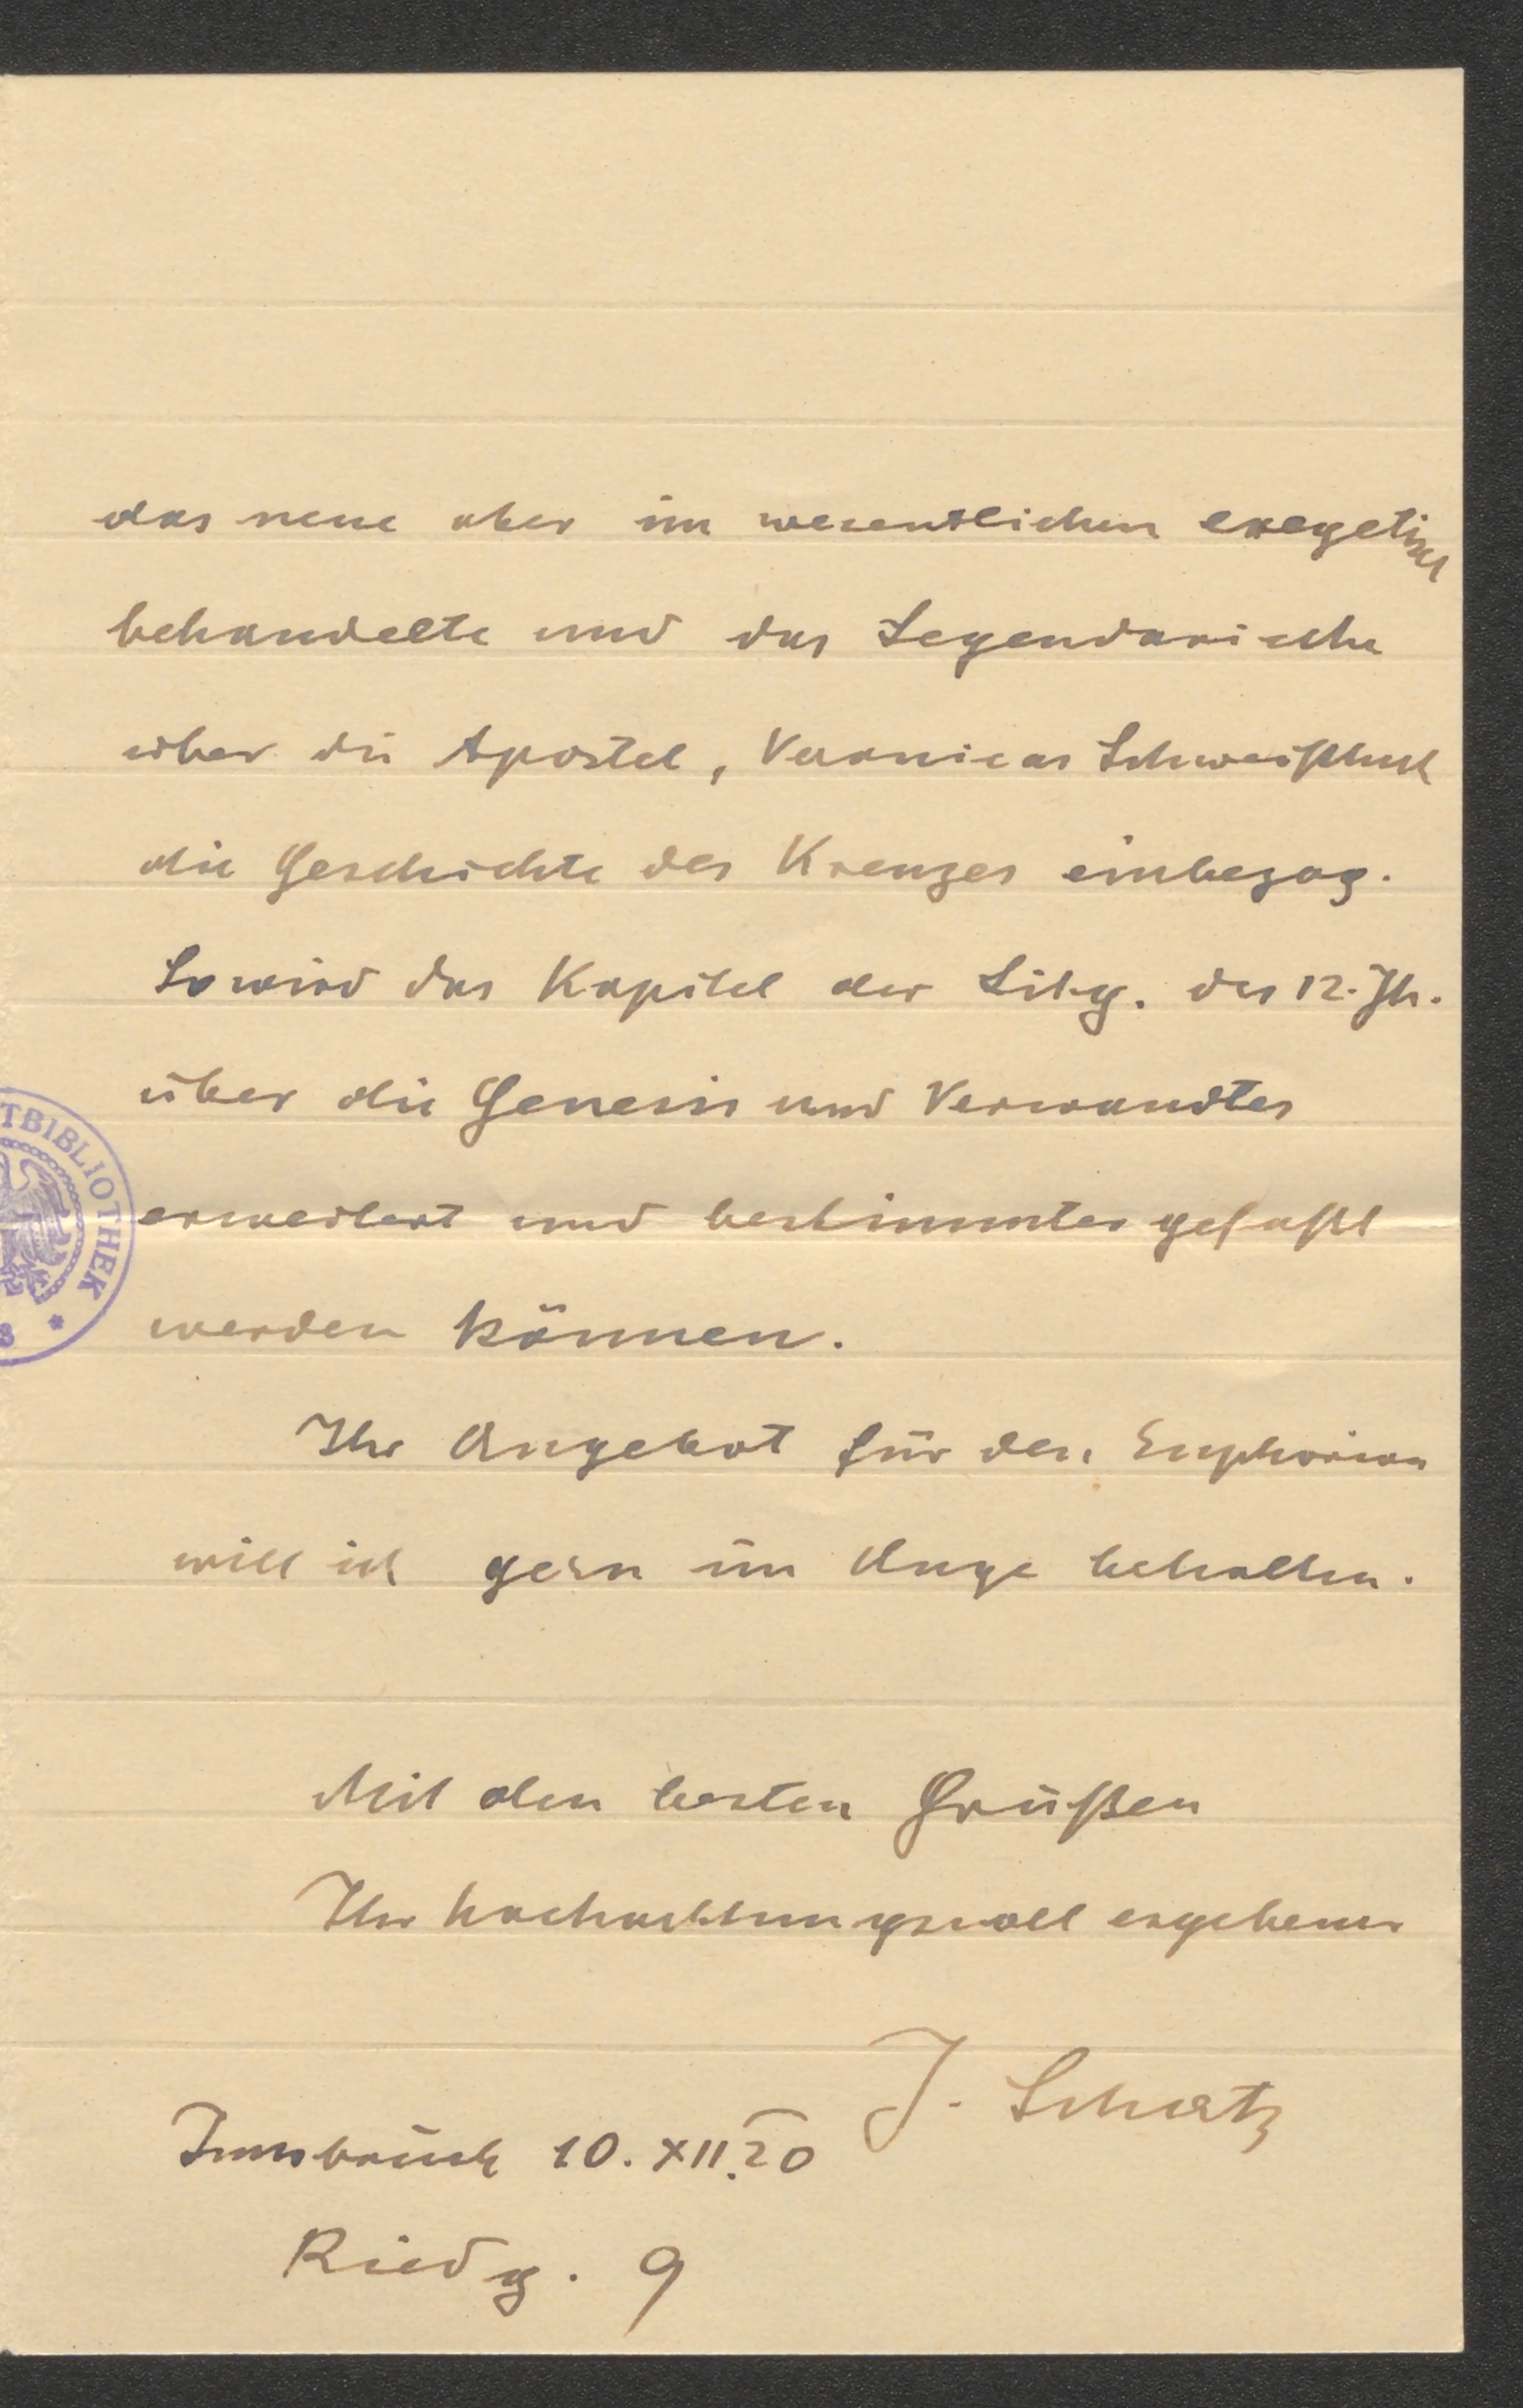 das neue aber im wesentlichen exegetisch
behandelte und das Legendarische
über die Apostel, Veronicas Schweißtuch
die Geschichte des Kreuzes einbezog.
So wird das Kapitel der Litg. des 12. Jh.
über die Genesis und Verwandtes
erweitert und bestimmter gefaßt
werden können.
Ihr Angebot für den Euphorion
will ich gern im Auge behalten.
Mit den besten Grüßen
Ihr hochachtungsvoll ergebener
J. Schatz
Innsbruck 10. XII. 20
Riedg. 9
TBIBLIOTHEK